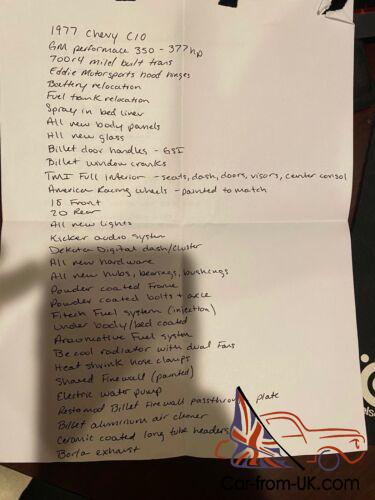 1977 Chevy C10
GM performace 350 - 377hp
700r4 mild built trans
Eddie Motorsports hood hinges
Battery relocation
Fuel tank relocation
Spray in bed liner
All new body panels
All new glass
Billet door handles - GSI
Billet window cranks
TMI Full interior - seats, dash, doors, visors, center consol
American Racing wheels - painted to match
18 Front
20 Rear
All new lights
Kicker audio system
Dekota Digital dash/cluster
All new hardware
All new hubs, bearings, bushings
Powder coated Frame
Powder coated bolts + axle
Fitech Fuel system (injection)
Under body/bed coated
Areomotive Fuel system
Be cool radiator with dual Fans
Heat shrink hose clamps
Shaved Firewall (painted)
Electric water pump
Restomod Billet Firewall passthrough plate
Billet aluminium air cleaner
Ceramic coated long tube headers
Borla exhaust
Car-from-UK.com